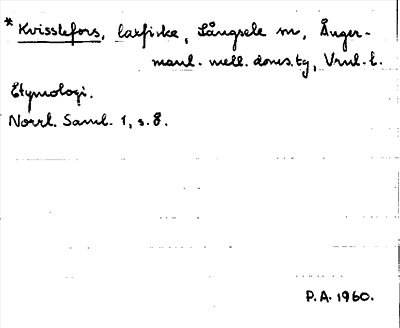 * Kvisslefors, laxfiske, Långsele sn, Ånger-
manl. mell. doms.tg, Vnrl. l.
Etymologi.
Norrl. Saml. 1, s. 8.
P.A. 1960.